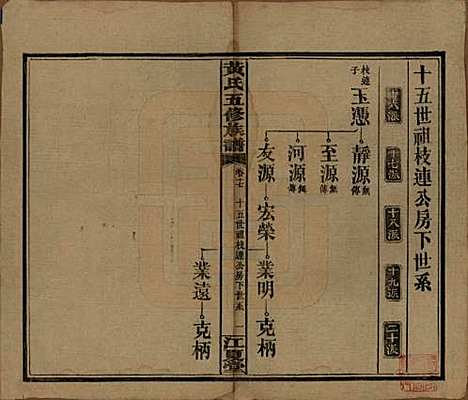 十五世祖枝連公房下世系
十六派
十七派
十八派
十九派
二十派
枝連子
玉憑
靜源
無傳
至源
無傳
河源
無傳
友源
宏榮
業明
克柄
業遠
克柄
黃氏五修族譜
卷七
十五世祖枝連公房下世系
一
江夏堂